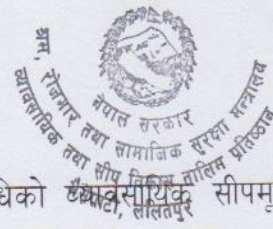 नेपाल सरकार
श्रम, रोजगार तथा सामाजिक सुरक्षा मन्त्रालय
व्यावसायिक तथा सीप विकास तालिम प्रतिष्ठान
भैंसेपाटी, ललितपुर
धिको व्यावसायिक सीपमू